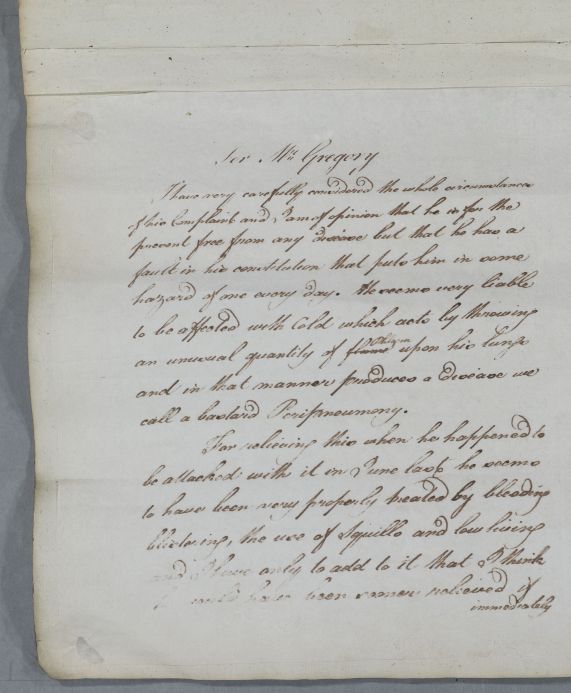 For Mr. Gregory
I have very carefully considered the whole circumstances
of his Complaint and I am of opinion that he is for the
present free from any disease but that he has a
fault in his constitution that puts him in some
hazard of one every day. He seems very liable
to be affected with Cold which acts by throwing
an unusual quantity of Phlegm upon his Lungs
and in that manner produces a disease we
call a bastard Peripneumony.
For relieving this when he happened to
be attacked with it in June last he seems
to have been very properly treated by bleeding
blistering, the use of Squills and low living
and I have only to add to it that I think
he would have been sooner relieved if
immediately